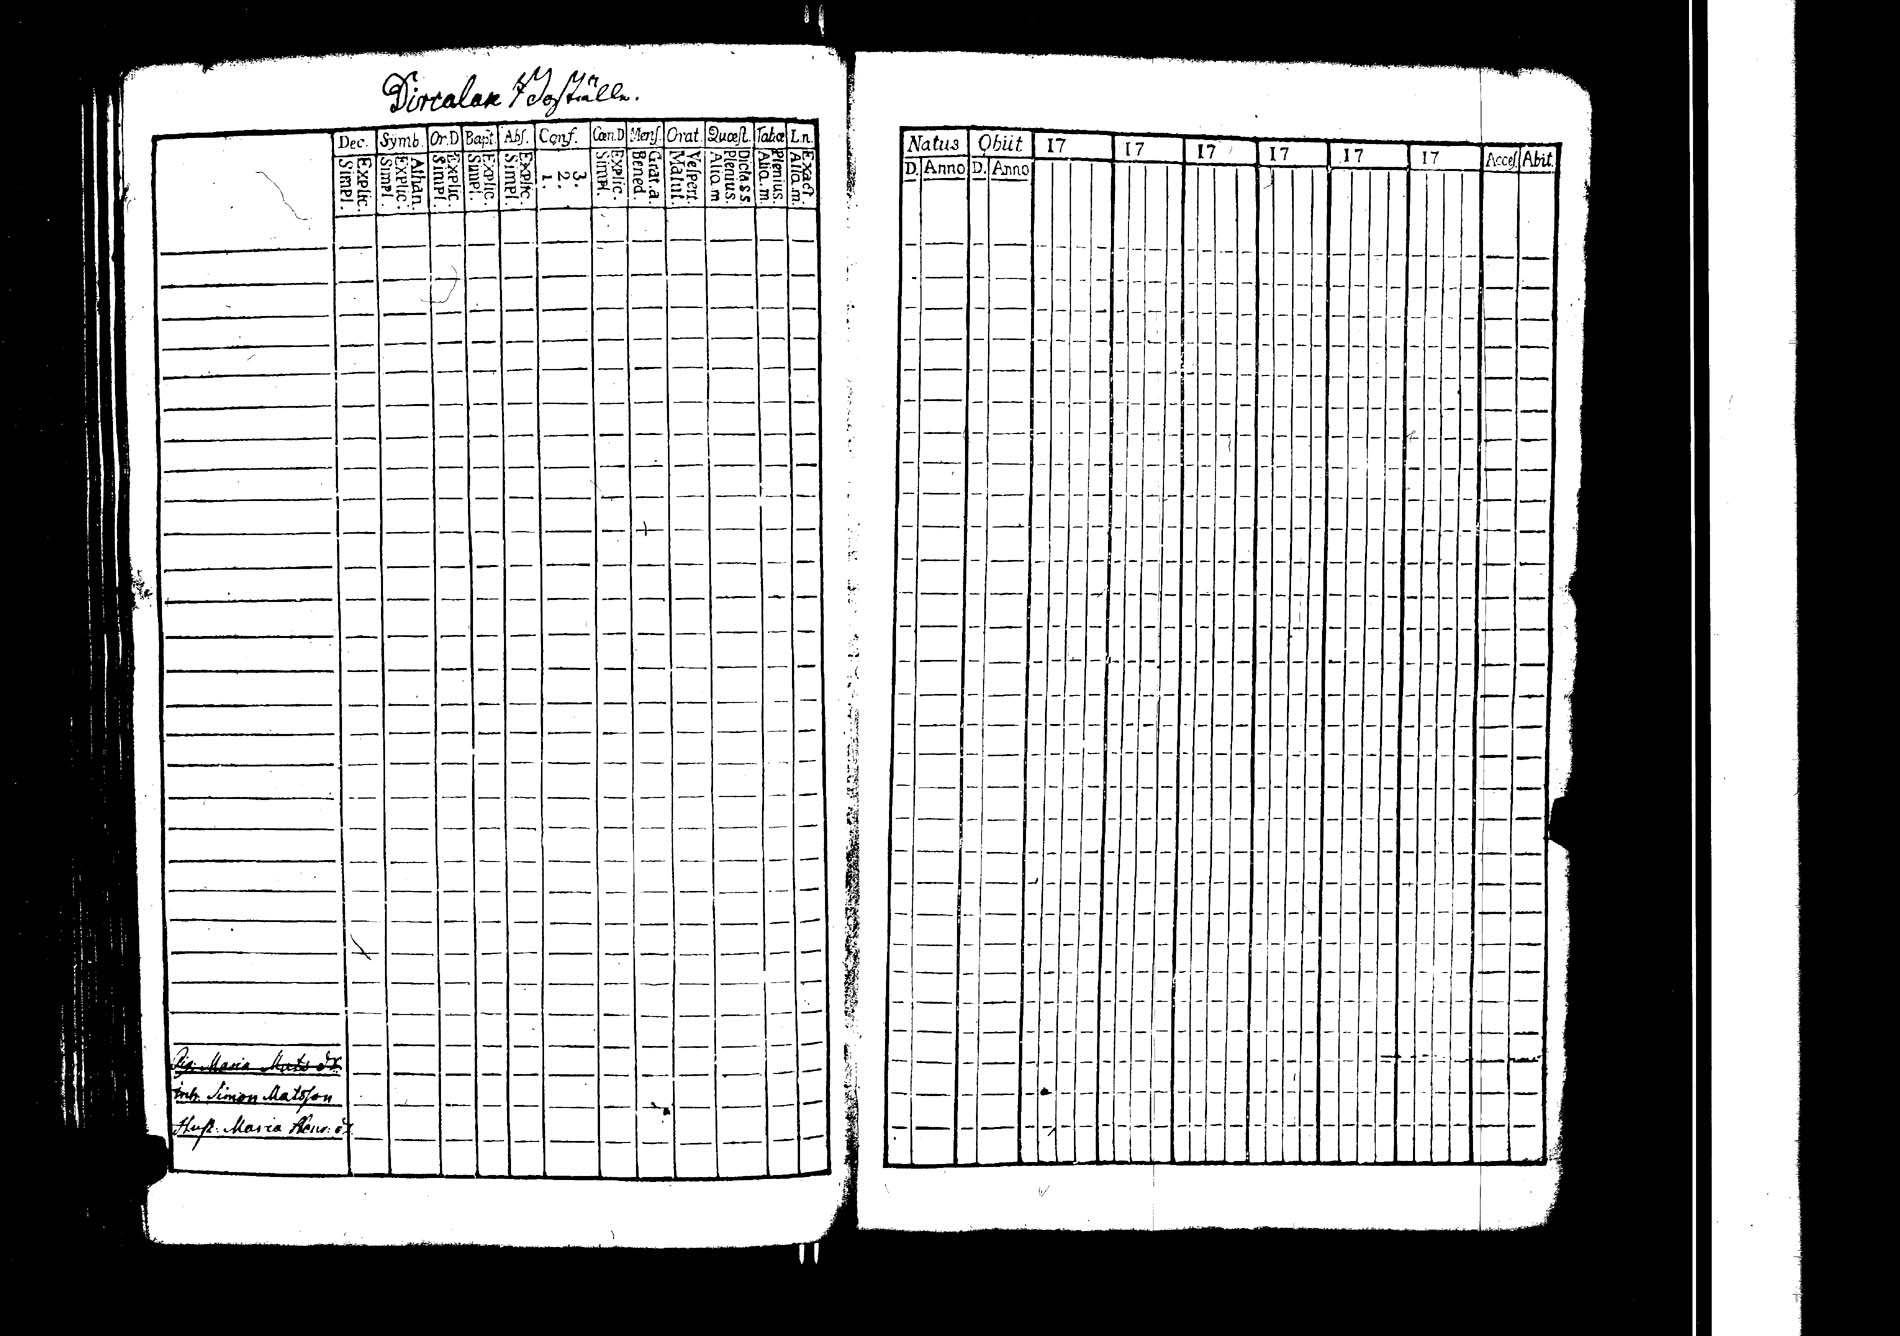 Dircalax
Dec. Symb. Or.D Bapt. Abs. Conf. Cœn.D Mens. Orat. Quæst. Tabæ Ln.
Explic. Simpl. Athan. Explic. Simpl. Explic. Simpl. Explic. Simpl. Explic. Simpl. 3. 2. 1. Explic. Simpl. Grat.a. Bened. Vespert. Matut. Dicta SS. Plenius. Aliq.m Plenius. Aliq.m. Exact. Aliq.m.
Maria Mats dr
inh. Simon Matsson
Hust: Maria
Natus Obiit 17 17 17 17 17 17 Acces. Abit.
D. Anno D. Anno